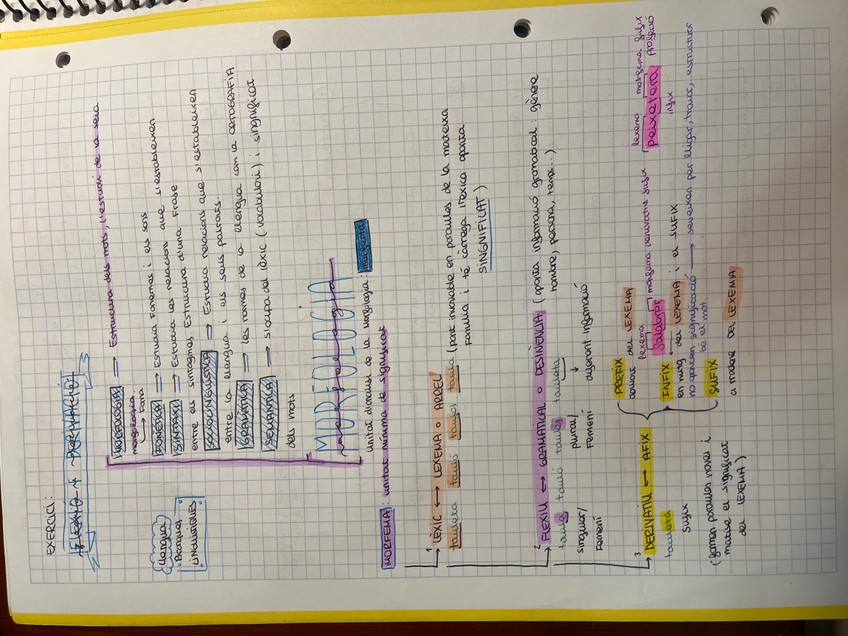 EXERCICI:
FLEXIÓ + DERIVACIÓ
Llengua
Branques
LINGÜÍSTIQUES
MORFOLOGIA → Estructura dels mots, l'estudi de la seva
morfologia
→ Forma
FONÈTICA → Estudia fonemes i els sons
SINTAXI → Estudia les relacions que s'estableixen
entre els sintagmes, Estructura d'una frase
SOCIOLINGÜÍSTICA → Estudia relacions que s'estableixen
entre la llengua i els seus parlants.
GRAMÀTICA → les normes de la llengua com la ORTOGRAFIA
SEMÀNTICA → s'ocupa del lèxic (vocabulari) i significat
dels mots
MORFOLOGIA
unitat d'anàlisi de la Morfologia: morfema
MORFEMA: unitat mínima de significat
1 LÈXIC ↔ LEXEMA o ARREL (part invariable en paraules de la mateixa
família i té càrrega lèxica aporta
SINGNIFICAT)
tauleta tauló taules taula
2 FLEXIU ↔ GRAMATICAL o DESINÈNCIA (aporta informació gramatical: gènere
nombre, persona, temps...)
taula tauló taules tauleta
singular/
Femení
plural/
Femení
adjuntant informació
3 DERIVATIU ↔ AFIX
tauleta
Sufix
(formen paraules noves i
matisen el significat
del LEXEMA)
PREFIX
davant del LEXEMA
lexema
morfema derivatiu sufix
INFIX
en mitg del LEXEMA i el SUFIX
no aporten significació → serveixen per lligar, travar, estructurar
bé el mot
SUFIX
a darrere del LEXEMA
lexema
morfema sufix
peixetera
infix